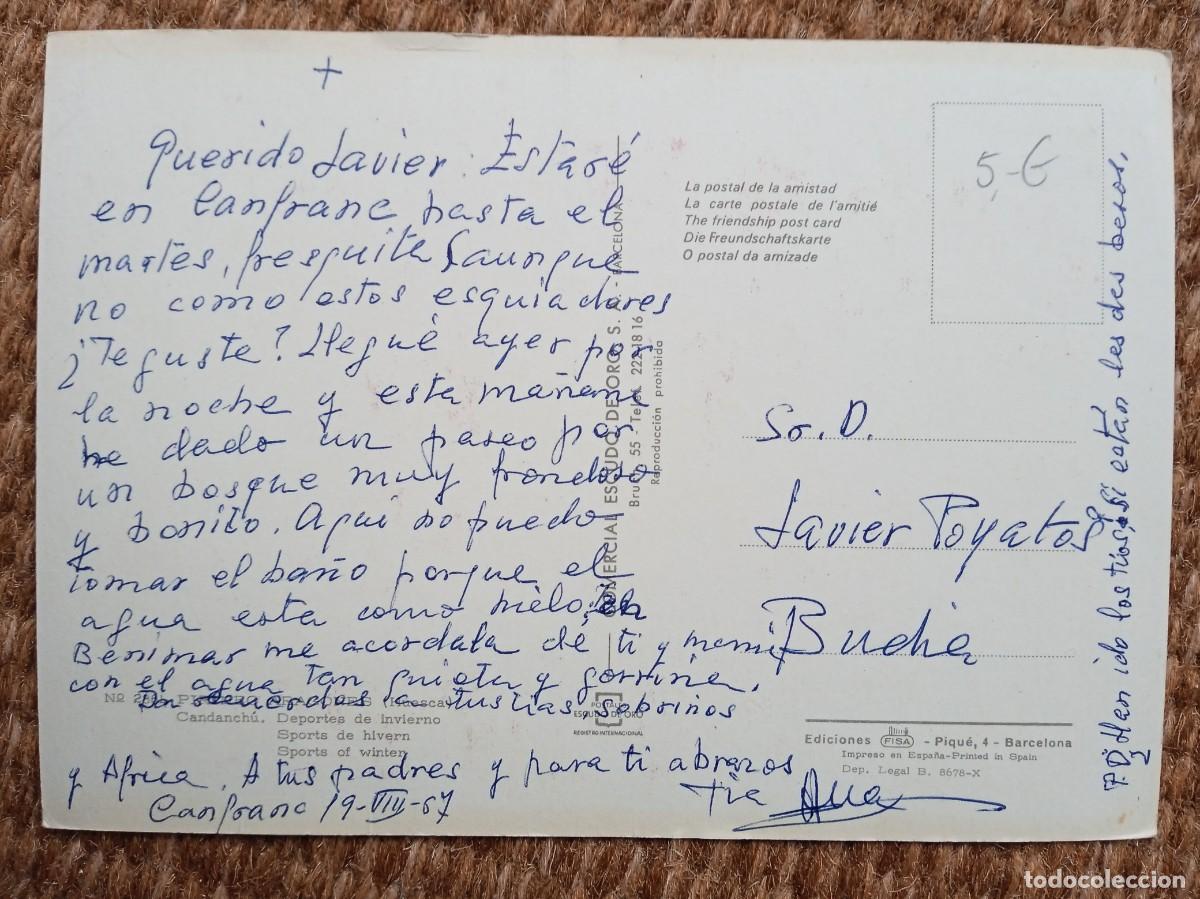 +
Querido Javier: Estaré
en Canfranc hasta el
martes, fresquita (aunque
no como estos esquiadores
¿Te guste? Llegué ayer por
la noche y esta mañana
he dado un paseo por
un bosque muy frondoso
y bonito. Aqui no puedo
tomar el baño porque el
agua esta como hielo, en
Benimar me acordaba de ti y mami
con el agua tan quieta y
Da recuerdos a tus tias, sobrinos
y Africa. A tus padres y para ti abrazos
Tia Ana
Canfranc 19-VIII-67
Nº
Candanchú. Deportes de invierno
Sports de hivern
Sports of winter
COMERCIAL ESCUDO DE ORO S. A. - BARCELONA
Bruch, 55 - Telef. 222 18 16
Reproducción prohibida
POSTAL
ESCUDO DE ORO
REGISTRO INTERNACIONAL
La postal de la amistad
La carte postale de l'amitié
The friendship post card
Die Freundschaftskarte
O postal da amizade
5,-€
Sr. D.
Javier Poyatos
Budia
Ediciones FISA - Piqué, 4 - Barcelona
Impreso en España-Printed in Spain
Dep. Legal B. 8678-X
P.D. ¿Han ido los tios? si están les das besos.
todocoleccion